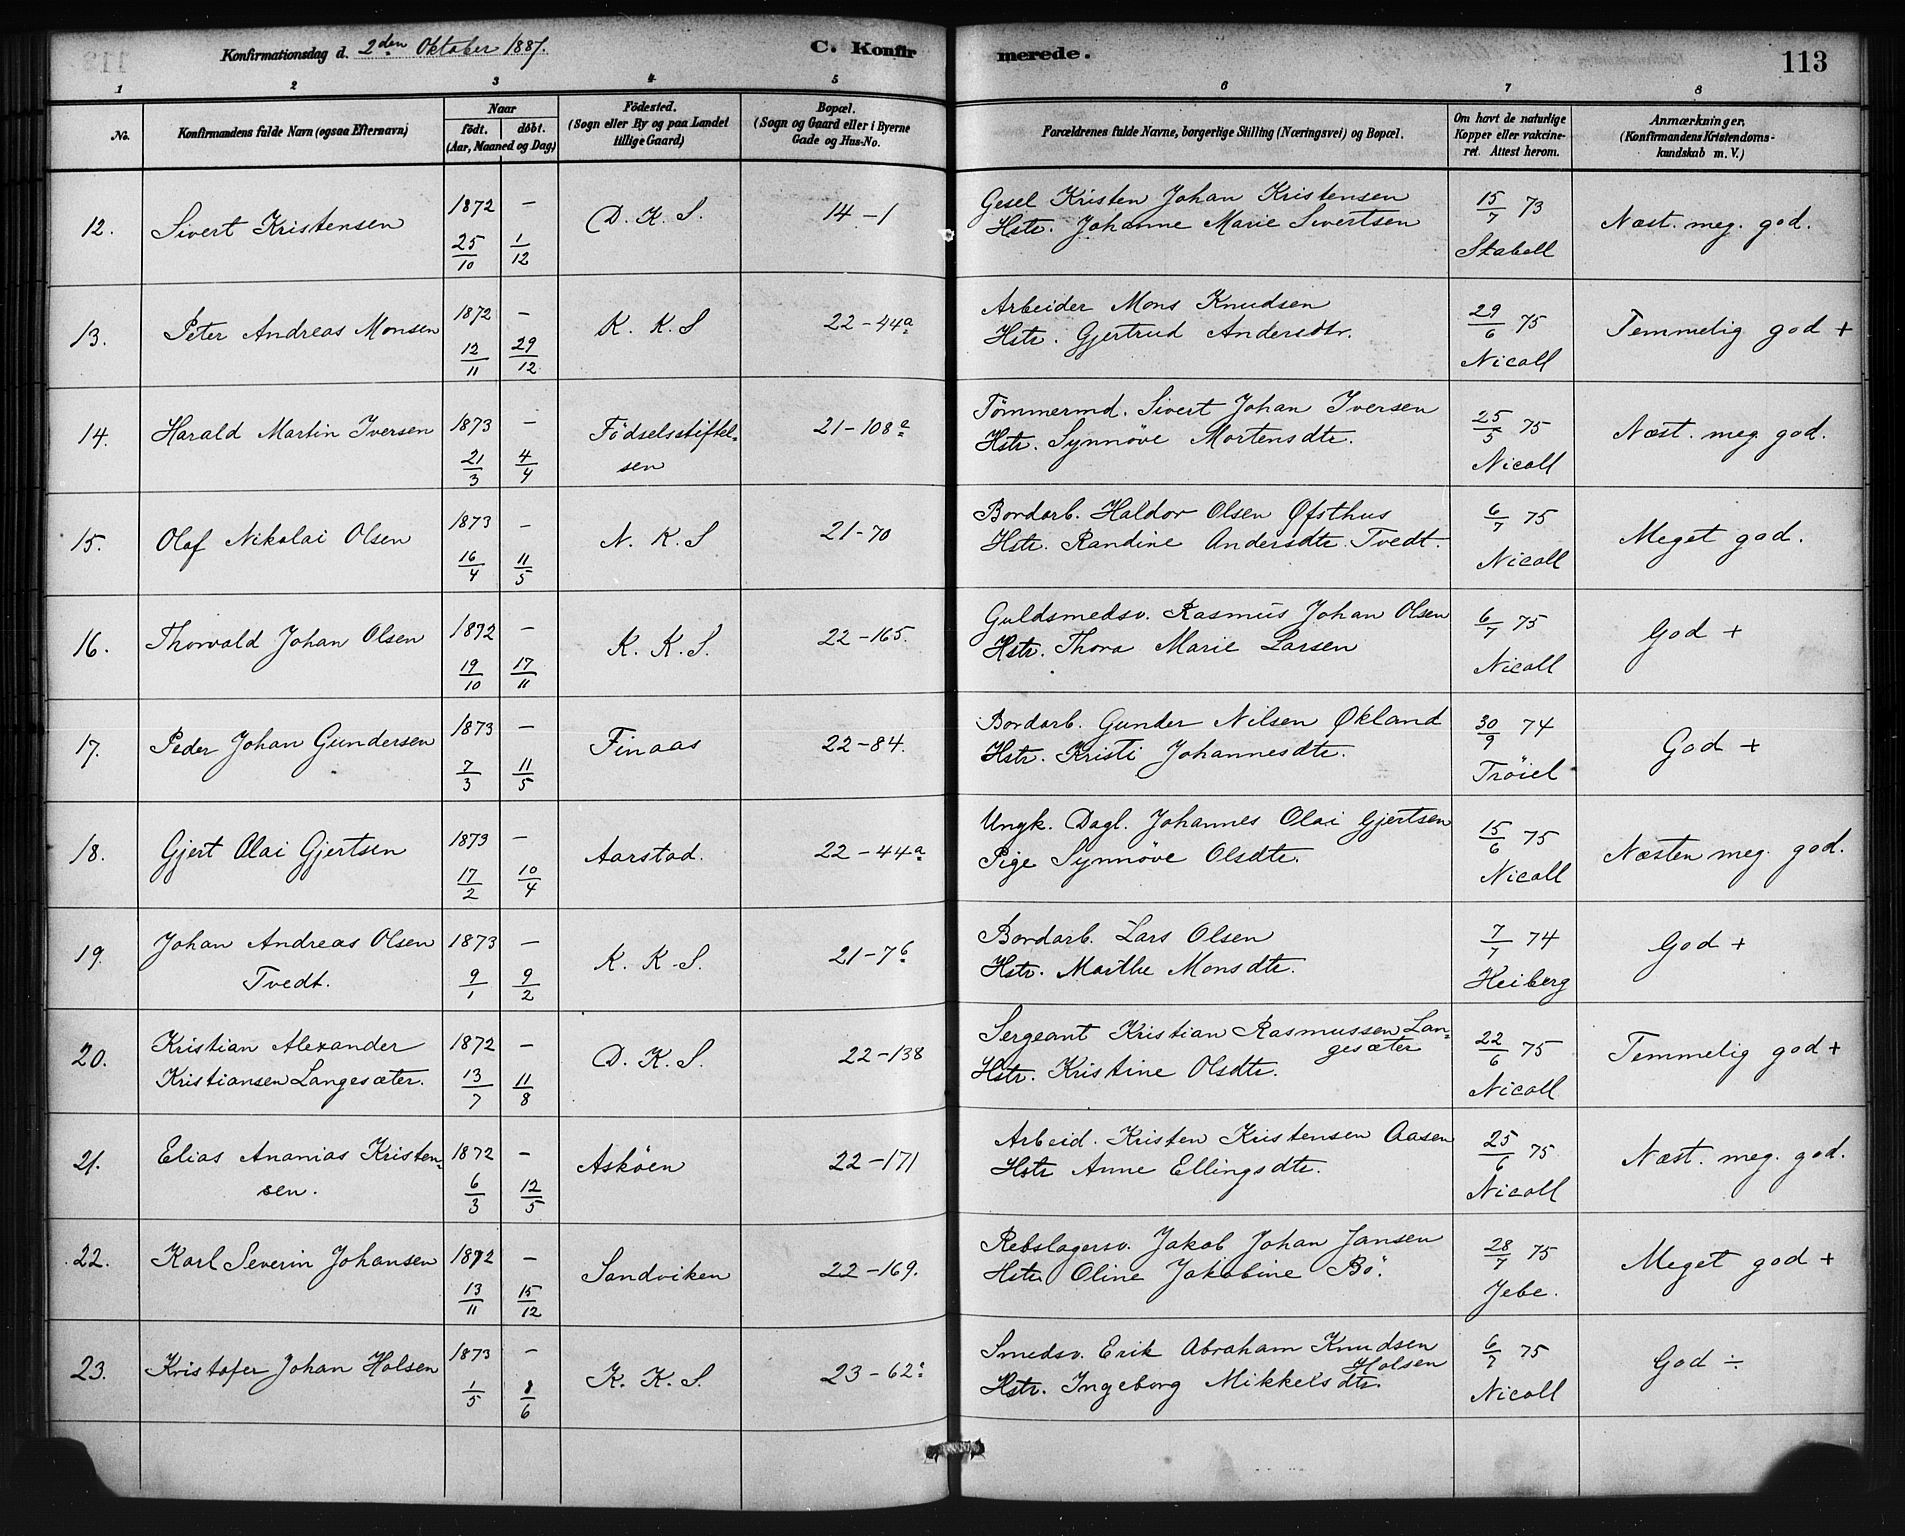 Konfirmationsdag d. 2den Oktober 1887.
C. Konfirmerede.
113
1 2 3 4 5 6 7 8
No.
Konfirmandens fulde Navn (ogsaa Efternavn)
Naar
födt. döbt.
(Aar, Maaned og Dag)
Födested.
(Sogn eller By og paa Landet
tillige Gaard)
Bopæl.
(Sogn og Gaard eller i Byerne
Gade og Hus-No.
Forældrenes fulde Navne, borgerlige Stilling (Næringsvei) og Bopæl.
Om havt de naturlige
Kopper eller vakcine-
ret. Attest herom.
Anmærkninger,
(Konfirmandens Kristendoms-
kundskab m. V.)
12. Sivert Kristensen 1872 25/10 — 1/12 D. K. S. 14-1
Gesel Kristen Johan Kristensen
Hstr. Johanne Marie Sivertsen
15/7 73
Staboll
Næst. meg. god.
13. Peter Andreas Monsen 1872 12/11 — 29/12 K. K. S 22-44a
Arbeider Mons Knudsen
Hstr. Gjertrud Andersdtr.
29/6 75
Nicoll
Temmelig god +
14. Harald Martin Iversen 1873 21/3 — 4/4 Födselsstiftel-
sen
21-108e
Tømmermd. Sivert Johan Iversen
Hstr. Synnöve Mortensdtr.
25/5 75
Nicoll
Næst. meg. god.
15. Olaf Nikolai Olsen 1873 16/4 — 11/5 N. K. S 21-70
Bordarb. Haldor Olsen Øfsthus
Hstr. Randine Andersdtr. Tvedt.
6/7 75
Nicoll
Meget god.
16. Thorvald Johan Olsen 1872 19/10 — 17/11 K. K. S. 22-165.
Guldsmedsv. Rasmus Johan Olsen
Hstr. Thora Marie Larsen
6/7 75
Nicoll
God +
17. Peder Johan Gundersen 1873 7/3 — 11/5 Finaas 22-84.
Bordarb. Gunder Nilsen Økland
Hstr. Kristi Johannesdtr.
30/9 74
Tröiel
God +
18. Gjert Olai Gjertsen 1873 17/2 — 10/4 Aarstad. 22-44a
Ungk. Dagl. Johannes Olai Gjertsen
Pige Synnöve Olsdtr.
15/6 75
Nicoll
Næsten meg. god.
19. Johan Andreas Olsen
Tvedt.
1873 9/1 — 9/2 K. K. S. 21-7b
Bordarb. Lars Olsen
Hstr. Marthe Monsdtr.
7/7 74
Heiberg
God +
20. Kristian Alexander
Kristiansen Langesæter.
1872 13/7 — 11/8 D. K. S. 22-138
Sergeant Kristian Rasmussen Lan-
gesæter
Hstr. Kristine Olsdtr.
22/6 75
Nicoll
Temmelig god +
21. Elias Ananias Kristen-
sen.
1872 6/3 — 12/5 Asköen 22-171
Arbeid. Kristen Kristensen Aasen
Hstr Anne Ellingsdtr.
25/6 75
Nicoll
Næst. meg. god.
22. Karl Severin Johansen 1872 13/11 — 15/12 Sandviken 22-169.
Rebslagersv. Jakob Johan Jansen
Hstr. Oline Jakobine Bö.
28/7 75
Jebe.
Meget god +
23. Kristofer Johan Holsen 1873 1/5 — 8/6 K. K. S. 23-62
Smedsv. Erik Abraham Knudsen
Holsen
Hstr. Ingeborg Mikkelsdtr.
6/7 75
Nicoll
God ÷